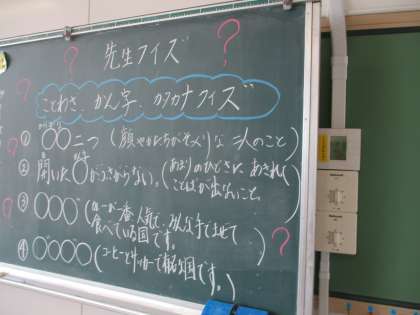 先生クイズ
ことわざ、かん字、カタカナクイズ
① 〇〇二つ (顔やかたちがそっくりな二人のこと)
② 開いた〇がふさがらない。(あまりのひどさに あきれて
ことばが出ないこと。
③ 〇〇〇 (カレーが一番人気で、みんな手で
食べている国です。
④ 〇〇〇〇 (コーヒーとサッカーで有名な国です。)